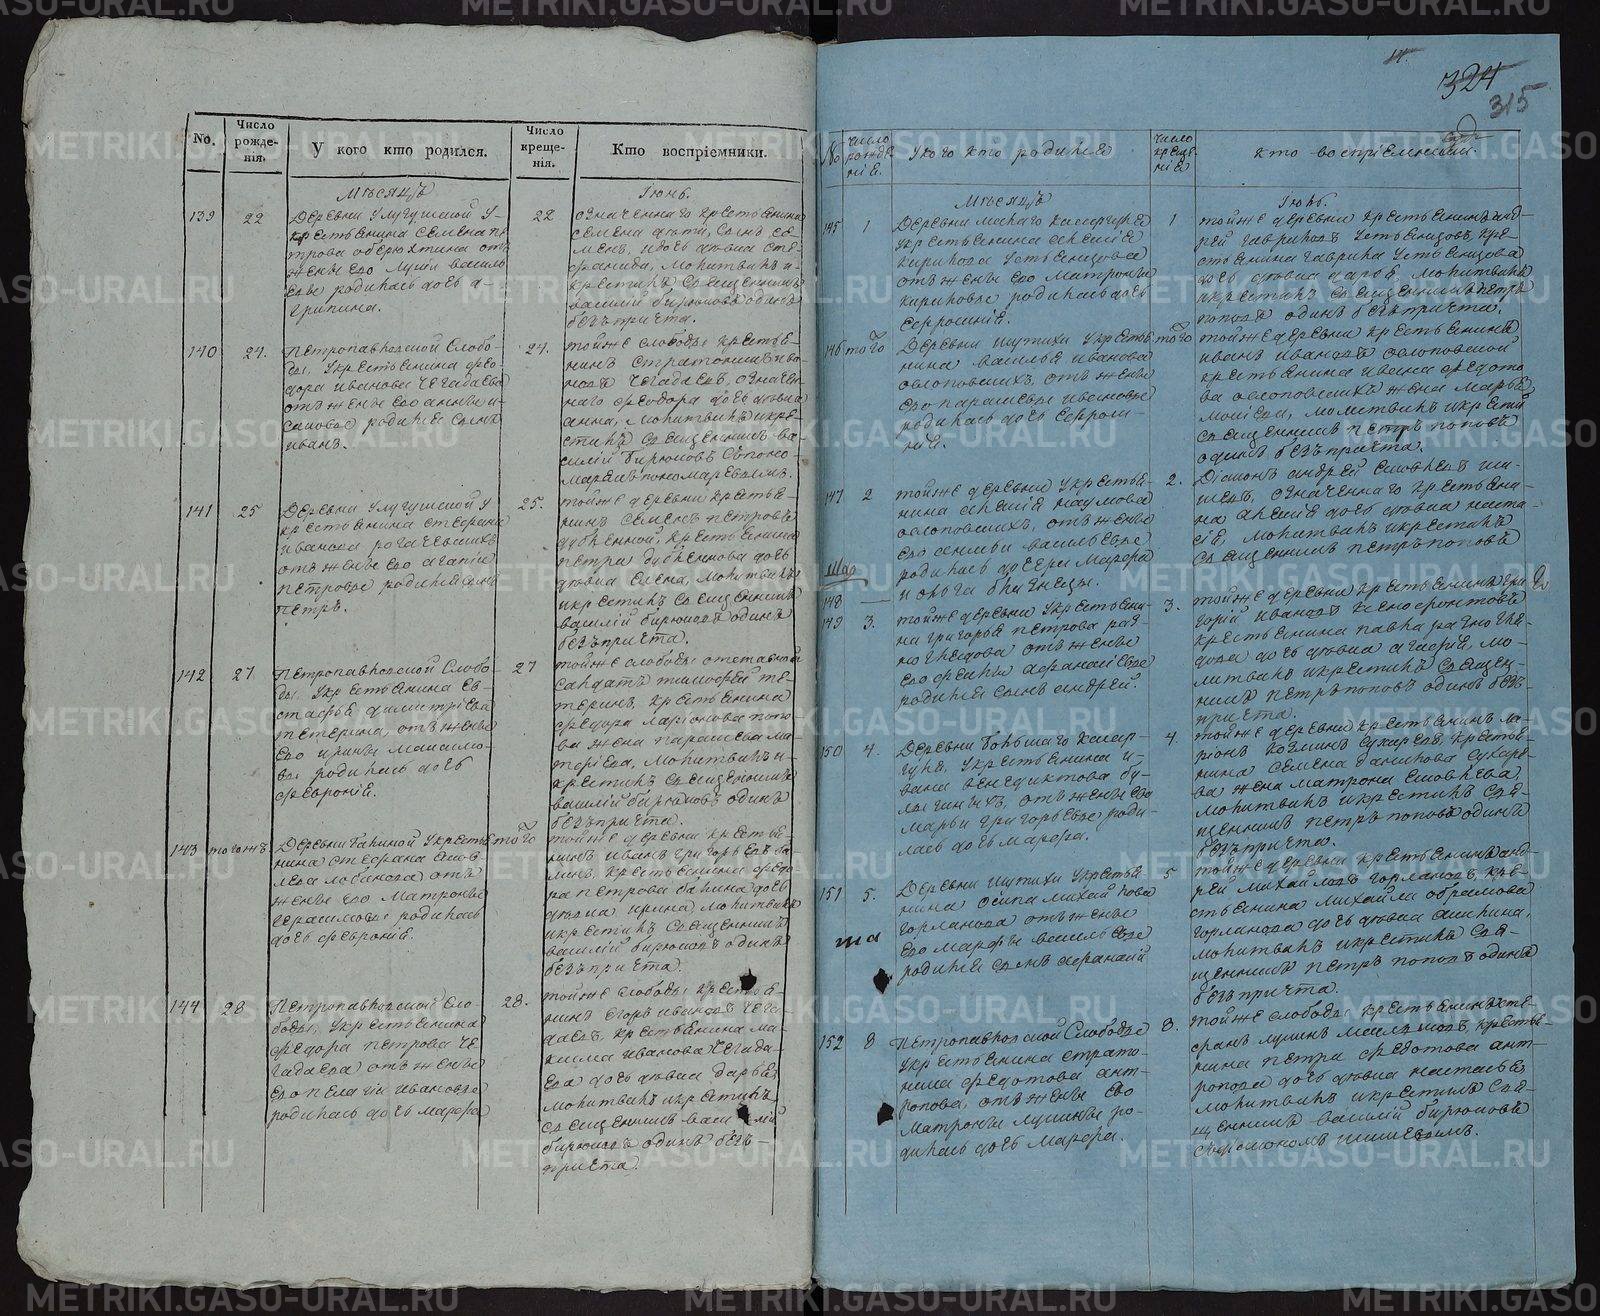 No.
Число рожде- нія.
У кого кто родился.
Число креще- нія.
Кто воспріемники.
Мѣсяцъ
Іюнь.
139
22
Деревни Улугушской у
крестьянина Семена Пе
трова Оберюхтина отъ
жены его
родилась дочь А-
грипина.
22
означеннаго крестьянина
Семена дѣти, сынъ Се
менъ, и дочь дѣвица Сте-
фанида, молитвилъ и
крестилъ священникъ
Василій Бирюковъ одинъ
безъ причта.
140
24.
Петропавловской слобо-
ды, у крестьянина Ѳео-
дора Иванова Чегадаева
отъ жены его Анны И-
саковой родился сынъ
Иванъ.
24.
тойже слободы крестья-
нинъ Стратоникъ Ива-
новъ Чегадаевъ, означен
наго Ѳеодора дочь дѣвица
Анна, молитвилъ и кре-
стилъ священникъ Ва-
силій Бирюковъ съ поно-
маремъ Пономаревымъ.
141
25
Деревни Улугушской у
крестьянина Стефана
Иванова Рогачевскихъ
отъ жены его Агапіи
Петровы родился сынъ
Петръ.
25.
тойже деревни крестья-
нинъ Семенъ Петровъ
крестьянина
Петра
дочь
дѣвица Елена, молитвилъ
и крестилъ священникъ
Василій Бирюковъ одинъ
безъ причта.
142
27
Петропавловской слобо-
ды, у крестьянина Ев-
стафья Димитріева
Тетерина, отъ жены
его Ирины Максимо-
вы родилась дочь
Февронія.
27
тойже слободы отставной
салдатъ Тимофей Те-
теринъ, крестьянина
Ѳедора Ларіонова Попо-
ва жена Парасковья Ма-
молитвилъ и
крестилъ священникъ
Василій Бирюковъ одинъ
безъ причта.
143
тогожъ
Деревни Галиной у крестья
нина Стефана Яков-
лева Лобанова отъ
жены его Матроны
Герасимовы родилась
дочь Февронія.
того
тойже деревни крестья
нинъ Иванъ Григорьевъ Га-
линъ, крестьянина Ѳедо-
ра Петрова Галина дочь
дѣвица Ирина, молитвилъ
и крестилъ священникъ
Василій Бирюковъ одинъ
безъ причта.
144
28
Петропавловской сло-
боды, у крестьянина
Ѳедора Петрова Че-
гадаева отъ жены
его Пелагіи Ивановы
родилась дочь Марфа
28.
тойже слободы крестья-
нинъ Егоръ Ивановъ Чега-
даевъ, крестьянина Ма-
ксима Иванова Чегада-
ева дочь дѣвица Дарья
молитвилъ и крестилъ
священникъ Василій
Бирюковъ одинъ безъ-
причта.
324
315
No
Число рожде- ніе.
У кого кто родился
Число креще- ніе
Кто воспріемники.
Мѣсяцъ
Іюнь.
145
1
Деревни Малаго Касаргуля
у крестьянина Алексія
Кирилова Устьянцова
отъ жены его Матроны
Кириловы родилась дочь
Ефросинія.
1
тойже деревни крестьянинъ Анд-
рей Гавриловъ Устьянцовъ, кре-
стьянина Гаврила Устьянцова
дочь дѣвица Дарья, молитвилъ
и крестилъ священникъ Петръ
Поповъ одинъ безъ причта.
146
того
Деревни Шутихи у крестья
нина Василья Иванова
Ослоповскихъ, отъ жены
его Парасковьи Ивановы
родилась дочь Ефроси-
нія.
того
тойже деревни крестьянинъ
Иванъ Ивановъ Ослоповской
крестьянина Ивана Ѳедото
ва Ослоповскихъ жена Марья
молитвилъ и крестилъ
священникъ Петръ Поповъ
одинъ безъ причта.
147
2
тойже деревни у крестья-
нина Алексія Наумова
Ослоповскихъ, отъ жены
его Ксеньи Васильевы
родились дочери Марфа
и Ольга близнецы.
2.
Діаконъ Андрей Яковлевъ Ши-
шевъ, означеннаго крестьяни-
на Алексія дочь дѣвица Наста-
сія, молитвилъ и крестилъ
священникъ Петръ Поповъ
148
149
3.
тойже деревни у крестьяни-
на Григорья Петрова
отъ жены
его Феклы Афанасьевы
родился сынъ Андрей.
3.
тойже деревни крестьянинъ Гри
горій Ивановъ Ксенофонтовъ
крестьянина Павла
дочь дѣвица Агафія, мо-
литвилъ и крестилъ священ-
никъ Петръ Поповъ одинъ безъ
причта.
150
4.
Деревни Большаго Касар-
гуля, у крестьянина И-
вана Венедиктова Бу-
лыгиныхъ, отъ жены его
Марьи Григорьевы роди-
лась дочь Марфа.
4.
тойже деревни крестьянинъ Ла-
ріонъ Козминъ Сухаревъ, крестья-
нина Семена Данилова Сухаре-
ва жена Матрона Яковлева,
молитвилъ и крестилъ свя-
щенникъ Петръ Поповъ одинъ
безъ причта.
151
5.
Деревни Шутихи у крестья
нина Осипа Михайлова
Горланова отъ жены
его Марфы Васильевы
родился сынъ Афанасій
5
тойже деревни крестьянинъ Анд-
рей Михайловъ Горлановъ, кре-
стьянина Михайла Абрамова
Горланова дочь дѣвица Акилина,
молитвилъ и крестилъ свя-
щенникъ Петръ Поповъ одинъ
безъ причта.
152
8
Петропавловской слободы
у крестьянина Страто-
ника Ѳедотова Ант-
ропова, отъ жены его
Матроны Лукины ро-
дилась дочь Марфа.
8.
тойже слободы крестьянинъ Сте-
фанъ Лукинъ
крестья-
нина Петра Ѳедотова Ант-
ропова дочь дѣвица Настасья
молитвилъ и крестилъ свя-
щенникъ Василій Бирюковъ
съ діакономъ Шишевымъ.
METRIKI.GASO-URAL.RU